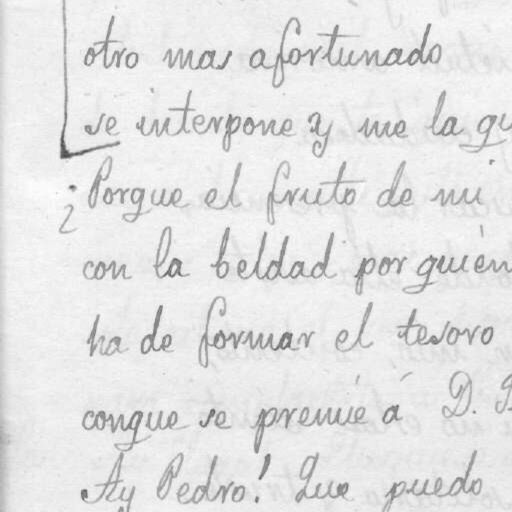 otro mas afortunado
se interpone y me la
¿Porque el fruto de mi
con la beldad por quién
ha de formar el tesoro
conque se premie á D.
Ay Pedro! Que puedo